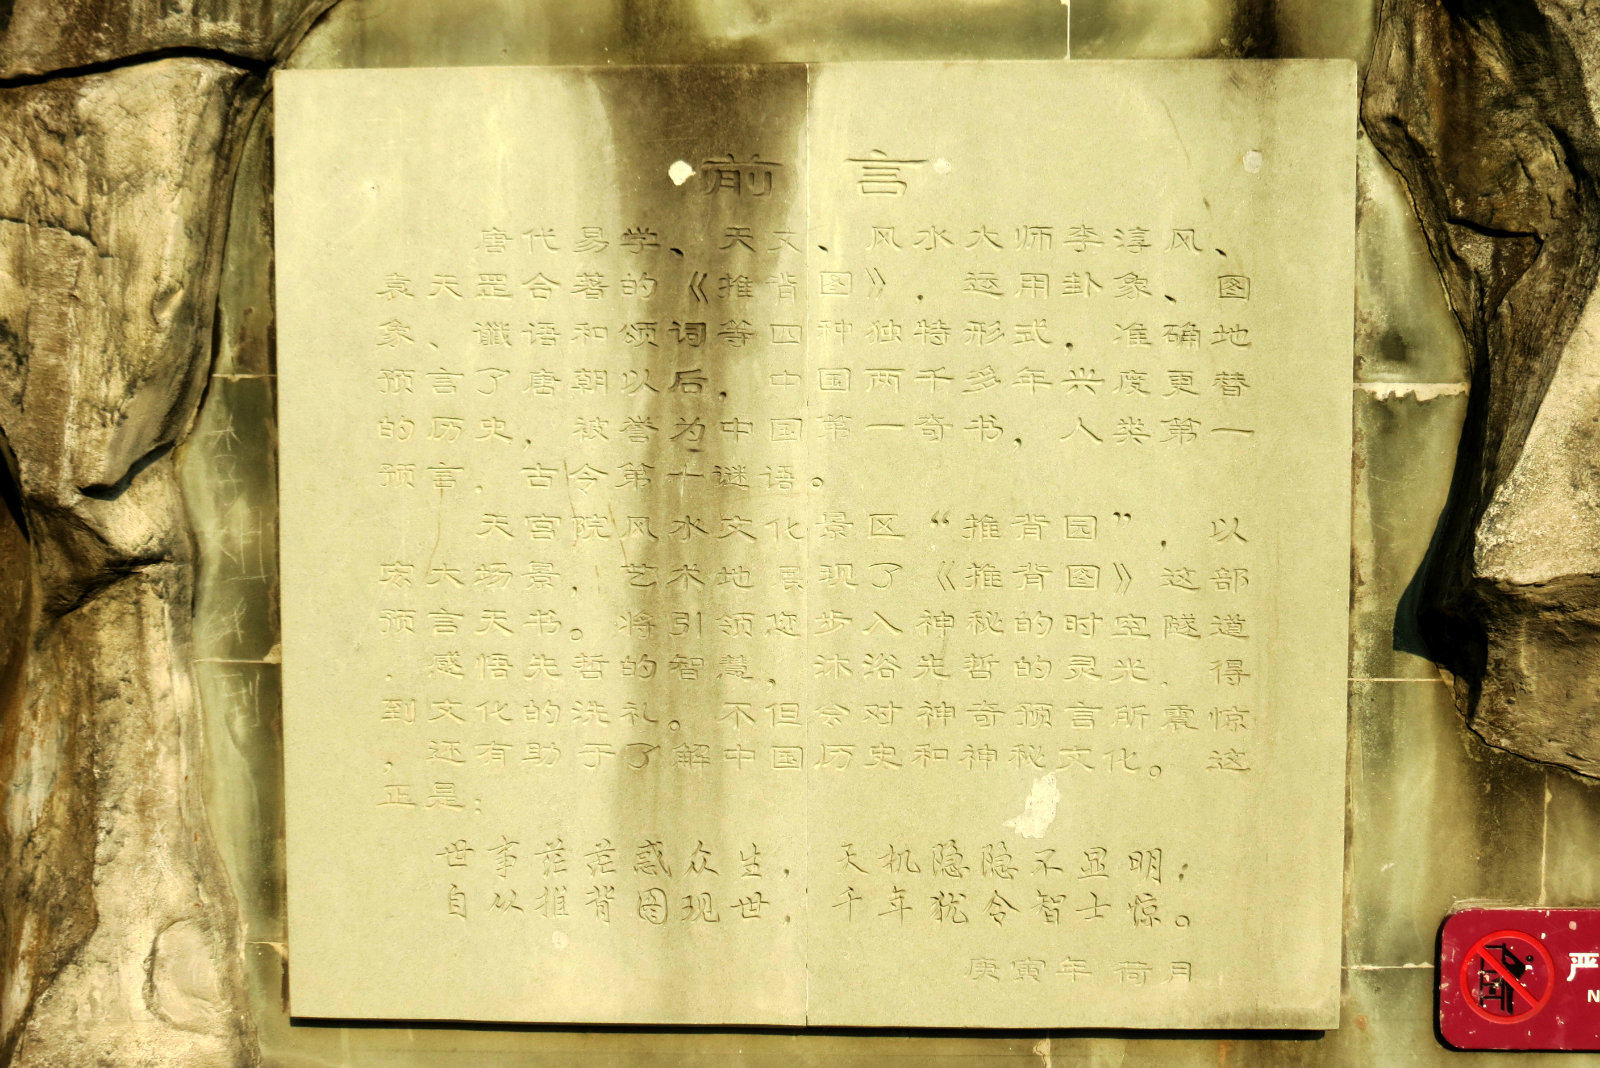 前言
唐代易学、天文、风水大师李淳风、
袁天罡合著的《推背图》，运用卦象、图
象、谶语和颂词等四种独特形式，准确地
预言了唐朝以后，中国两千多年兴度更替
的历史，被誉为中国第一奇书，人类第一
预言，古令第十谜语。
天宫院风水文化景区“推背园”，以
宏大场景，艺术地 现了《推背图》这部
预言天书。将引领您步入神秘的时空隧道
，感悟先哲的智慧，沐浴先哲的灵光，得
到文化的洗礼。不但令对神奇预言所震惊
，还有助于了解中国历史和神秘文化。这
正是：
世事茫茫惑众生，天机隐隐不显明；
自从推背图现世，千年犹令智士惊。
庚寅年荷月
严
N